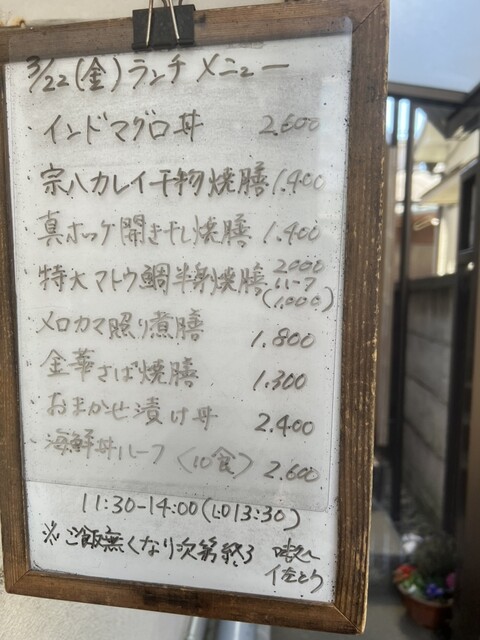 3/22(金)ランチメニュー
・インドマグロ丼 2.600
宗八カレイ干物焼膳 1.400
真ホッケ開き干し焼膳 1.400
特大マトウ鯛半身焼膳 2000
ハーフ
(1.000)
メロカマ照り煮膳 1.800
金華さば焼膳 1.300
・おまかせ漬け丼 2.400
・海鮮丼ハーフ〈10食〉 2.600
11:30-14:00(LO13:30)
※ご飯無くなり次第終了